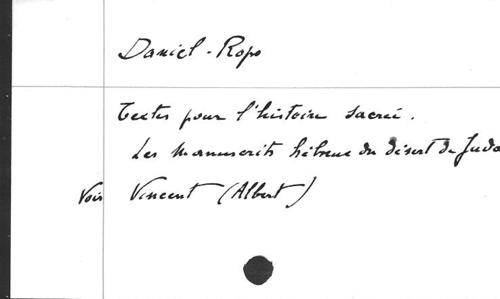 Daniel-Rops
Textes pour l'histoire sacrée.
Les manuscrits hébreux du désert de Juda
Voir Vincent (Albert)